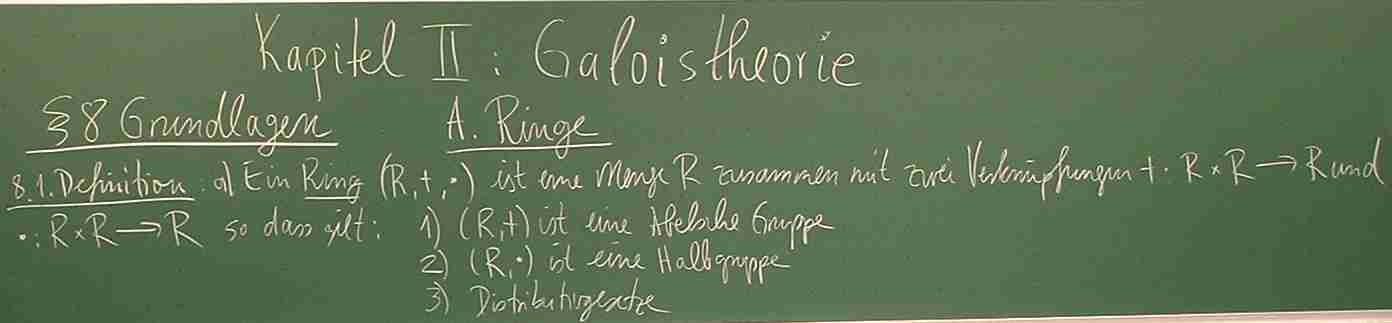 Kapitel II: Galoistheorie
§8 Grundlagen A. Ringe
8.1. Definition: a) Ein Ring (R,+,·) ist eine Menge R zusammen mit zwei Verknüpfungen +: R×R→R und
·: R×R→R so dass gilt: 1) (R,+) ist eine Abelsche Gruppe
2) (R,·) ist eine Halbgruppe
3) Distributivgesetze